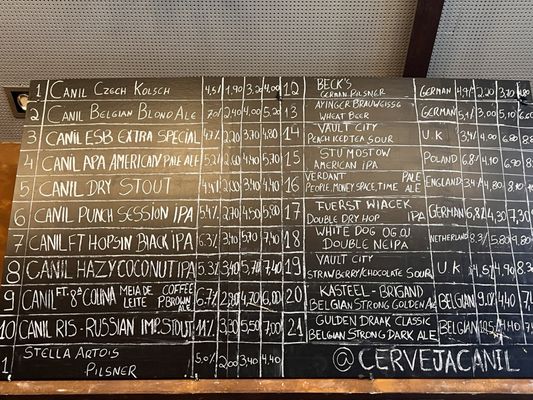 1 CANIL CZECH KOLSCH 4,5% 1,90 3,20 4,00
2 CANIL BELGIAN BLOND ALE 7,0% 2,40 4,00 5,20
3 CANIL ESB EXTRA SPECIAL 4,7% 2,20 3,70 4,80
4 CANIL APA AMERICAN PALE ALE 5,2% 2,60 4,40 5,70
5 CANIL DRY STOUT 2,00 3,40 4,40
6 CANIL PUNCH SESSION IPA 5,4% 2,70 4,50 5,80
7 CANIL FT HOPSIN BLACK IPA 6,3% 3,40 5,70 7,40
8 CANIL HAZY COCONUT IPA 5,3% 3,40 5,70 7,40
9 CANIL FT. 8ª COLINA MEIA DE LEITE COFFEE P.BROWN ALE 6,7% 2,80 4,70 6,00
10 CANIL RIS - RUSSIAN IMP. STOUT 11% 3,30 5,50 7,00
1 STELLA ARTOIS PILSNER 5,0% 2,00 3,40 4,40
12 BECK'S GERMAN PILSNER GERMAN 2,20 3,70
13 AYINGER BRAUWEISSE WHEAT BEER GERMAN 5,1% 3,00 5,10
14 VAULT CITY PEACH ICED TEA SOUR U.K 4,00
15 STU MOSTOW AMERICAN IPA POLAND 6,8% 4,10 6,90
16 VERDANT PEOPLE, MONEY, SPACE, TIME PALE ALE ENGLAND 4,80
17 FUERST WIACEK DOUBLE DRY HOP IPA GERMAN 6,8% 4,30 7,30
18 WHITE DOG OG OJ DOUBLE NEIPA NETHERLAND 8.3% 5.80 9.80
19 VAULT CITY STRAWBERRY/CHOCOLATE SOUR U K 4,5% 4,90
20 KASTEEL - BRIGAND BELGIAN STRONG GOLDEN ALE BELGIAN 9.0% 4.40
21 GULDEN DRAAK CLASSIC BELGIAN STRONG DARK ALE BELGIAN 10,5% 4.40
@CERVEJACANIL